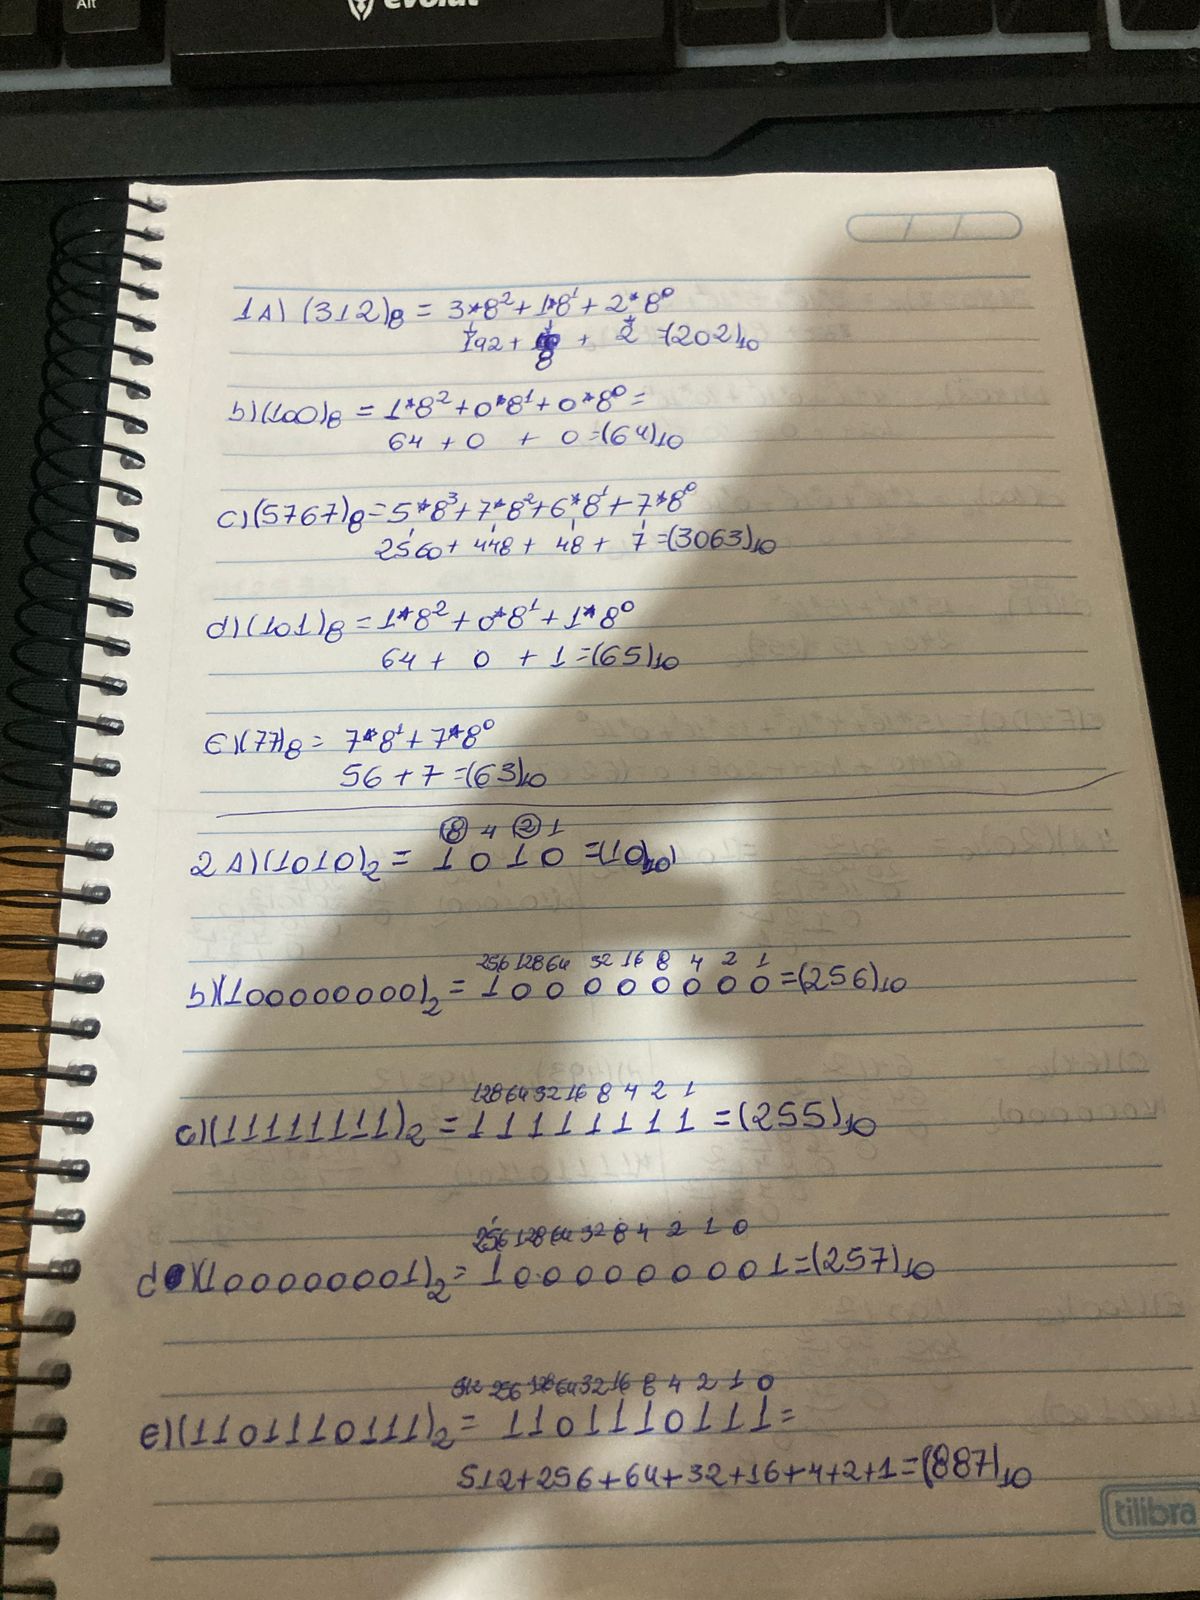 Alt
evolut
1A) (312)8 = 3*8² + 1*8¹ + 2*8⁰
192 + 8 + 2 =(202)10
b)(100)8 = 1*8² + 0*8¹ + 0*8⁰ =
64 + 0 + 0 =(64)10
c)(5767)8 = 5*8³ + 7*8² + 6*8¹ + 7*8⁰
2560 + 448 + 48 + 7 =(3063)10
d)(101)8 = 1*8² + 0*8¹ + 1*8⁰
64 + 0 + 1 =(65)10
e)(77)8 = 7*8¹ + 7*8⁰
56 + 7 =(63)10
8 4 2 1
2 A)(1010)2 = 1 0 1 0 =(10)10
256 128 64 32 16 8 4 2 1
b)(100000000)2 = 1 0 0 0 0 0 0 0 0 =(256)10
128 64 32 16 8 4 2 1
c)(11111111)2 = 1 1 1 1 1 1 1 1 = (255)10
256 128 64 32 8 4 2 1 0
d)(100000001)2 = 1 0 0 0 0 0 0 0 0 1 =(257)10
512 256 128 64 32 16 8 4 2 1 0
e)(1101110111)2 = 1 1 0 1 1 1 0 1 1 1 =
512+256+64+32+16+4+2+1=(887)10
tilibra